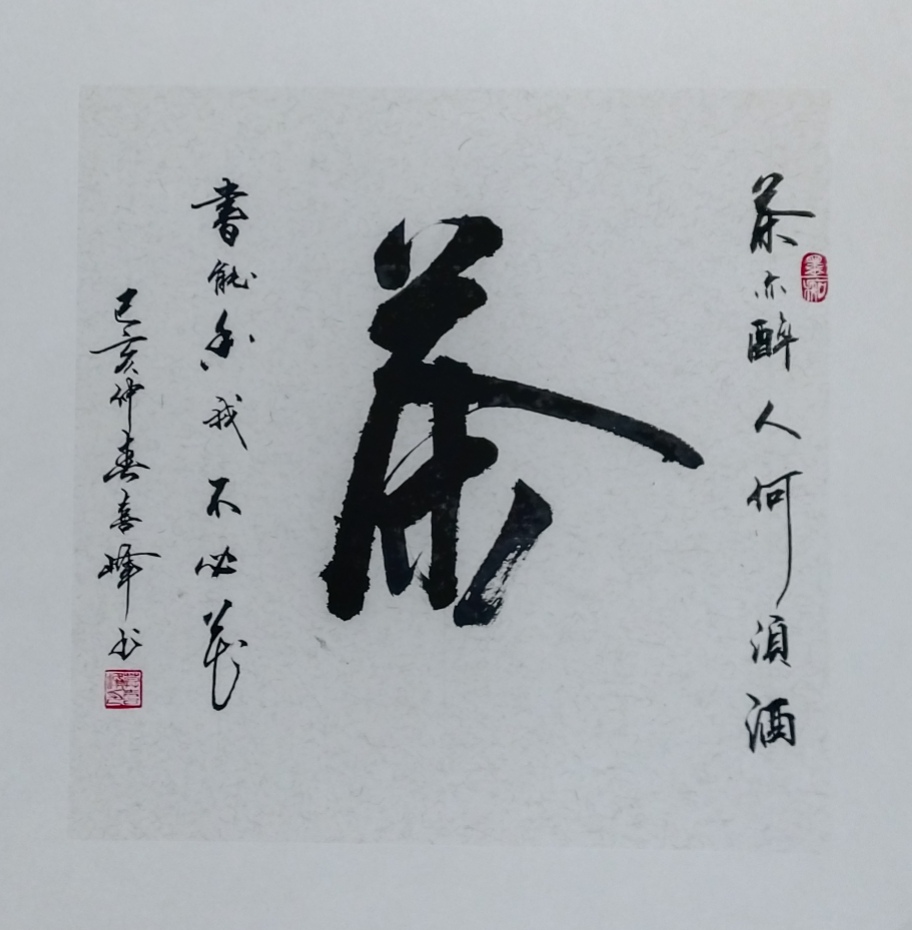 茶亦醉人何須酒
茶
書能香我不必花
己亥仲春喜峰书